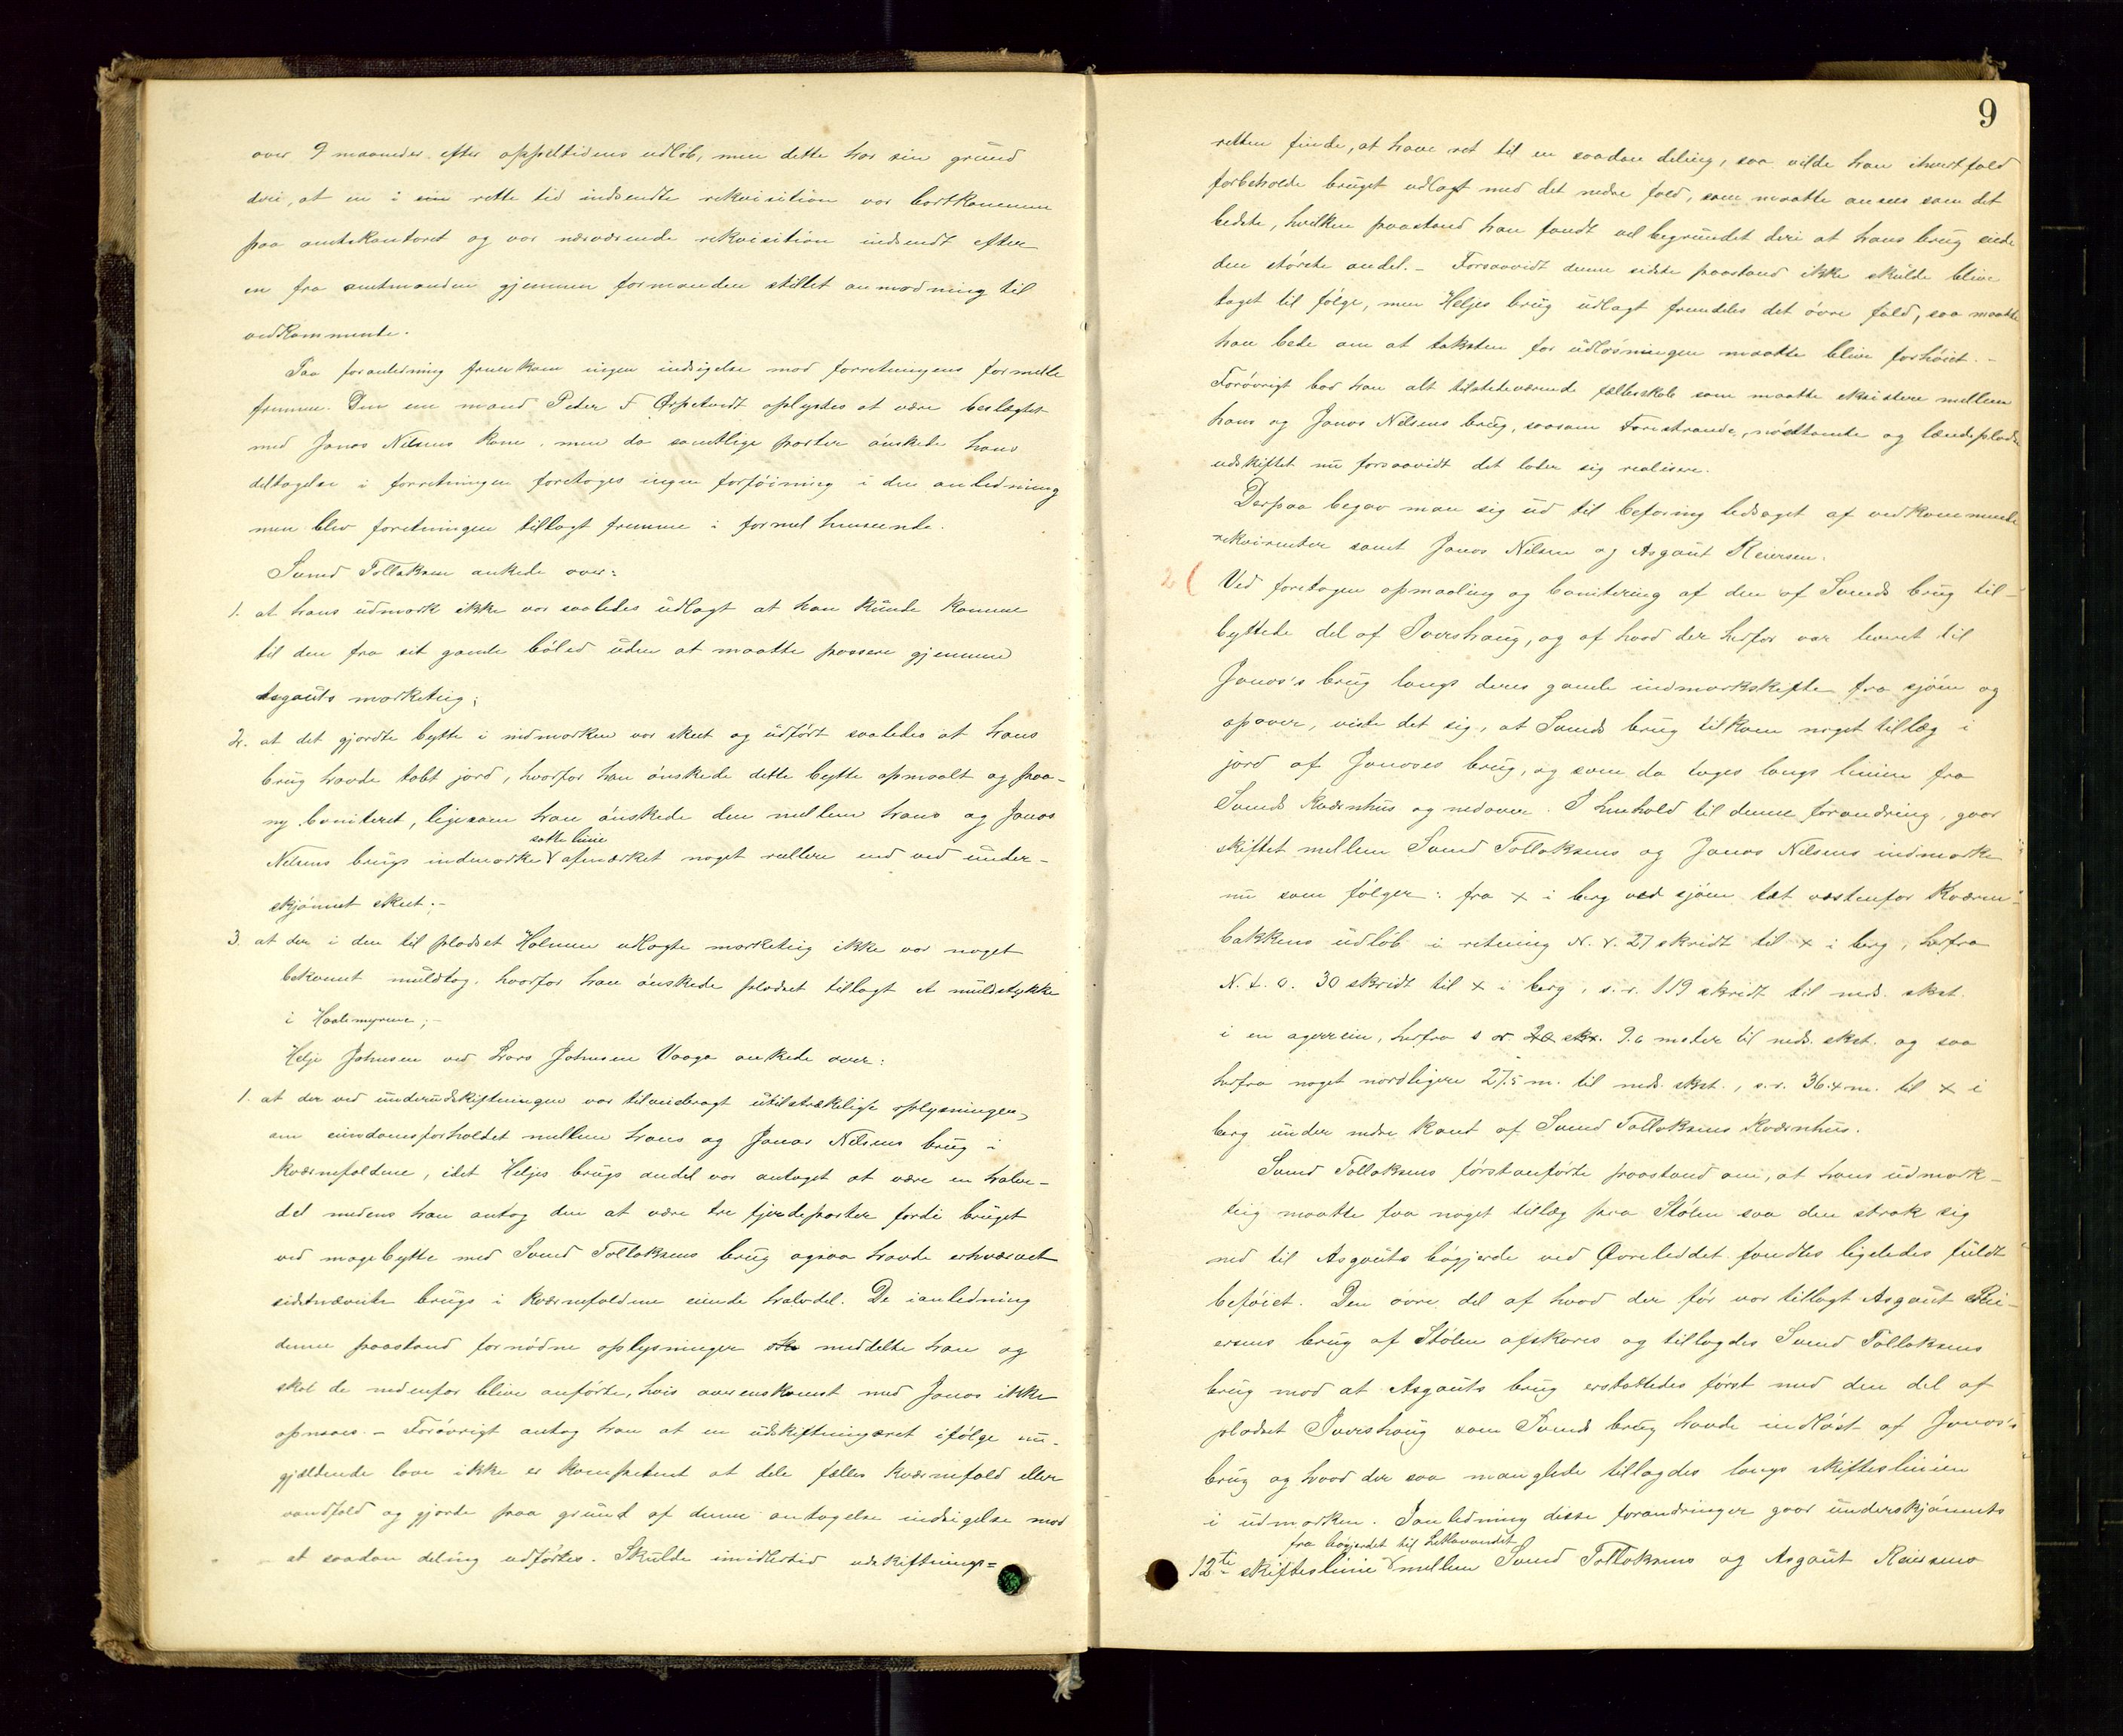 over 9 maaneder efter appeltidens udløb, men dette har sin grund
deri, at en i rette tid indsendte rekvisition var bortkommen
paa amtskontoret og var nærværende rekvisition indsendt efter
en fra amtmanden gjennem formanden stillet anmodning til
vedkommende.
Paa foranledning fremkom ingen indsigelse mod forretningens formelle
fremme. Den ene mand Peder F Ørpetvedt oplystes at være beslægtet
med Jonas Nilsens kone, men da samtlige parter ønskede hans
deltagelse i forretningen foretoges ingen forføining i den anledning
men blev forretningen tillagt fremme i formel henseende.
Svend Tollaksen ankede over:
1. at hans udmark ikke var saaledes udlagt at han kunde komme
til den fra sit gamle böled uden at maatte passere gjennem
Asgauts markteig;
2. at det gjordte bytte i indmarken var skeet og udført saaledes at hans
brug havde tabt jord, hvorfor han ønskede dette bytte opmaalt og paa-
ny boniteret, ligesom han ønskede den mellem hans og Jonas
satte linie
Nilsens brugs indmarke afmærket noget rettere end ved under-
skjønnet skeet.-
3. at der i den til pladset Holmen udlagte markteig ikke var noget
bekvemt muldtag, hvorfor han ønskede pladset tillagt et muldstykke
i Haalemyrene;-
Helje Johnsen ved Lars Johnsen Vaage ankede over:
1. at der ved underudskiftningen var tilveiebragt utilstrækelige oplysninger
om eiendomsforholdet mellem hans og Jonas Nilsens brug i
kværnefaldene, idet Heljes brugs andel var antaget at være en halv-
del medens han antog den at være tre fjerdeparter fordi bruget
ved magebytte med Svend Tollaksens brug ogsaa havde erhværvet
sidstnævnte brugs i kværnefaldene eiende halvdel. De i anledning
denne paastand fornødne oplysninger meddelte han og
skal de nedenfor blive anførte, hvis overenskomst med Jonas ikke
opnaaes.- Forøvrigt antog han at en udskiftningsret ifølge nu-
gjældende love ikke er kompetent at dele fælles kværnefald eller
vandfald og gjorde paa grund af denne antagelse indsigelse mod
at saadan deling udførtes. Skulde imidlertid udskiftnings=
9
retten finde, at have ret til en saadan deling, saa vilde han ihvertfald
forbeholde bruget udlagt med det nedre fald, som maatte ansees som det
bedste, hvilken paastand han fandt vel begrundet deri at hans brug eiede
den største andel.- Forsaavidt denne sidste paastand ikke skulde blive
taget til følge, men Heljes brug udlagt fremdeles det øvre fald, saa maatte
han bede om at taksten for udløsningen maatte blive forhøiet.-
Forøvrigt bad han alt tilstedeværende fællesskab som maatte eksistere mellem
hans og Jonas Nilsens brug, saasom Farestrande, nøsttomte og lændeplads
udskiftet nu forsaavidt det lader sig realisere.
Derpaa begav man sig ud til befaring ledsaget af vedkommende
rekvirenter samt Jonas Nilsen og Asgaut Reiersen.
2 ( Ved foretagen opmaaling og bonitering af den af Svends brug til-
byttede del af Ivershaug, og af hvad der herfor var leveret til
Jonas's brug langs deres gamle indmarkskifte fra sjøen og
opover, viste det sig, at Svends brug tilkom noget tillæg i
jord af Jonases brug, og som da toges langs linien fra
Svends kværnhus og nedover. I henhold til denne forandring, gaar
skiftet mellem Svend Tollaksens og Jonas Nilsens indmarke
nu som følger: fra x i berg ved sjøen tæt vestenfor Kværn-
bækkens udløb i retning N. v. 27 skridt til x i berg, herfra
N. t. o. 30 skridt til x i berg, s. r. 119 skridt til neds. skst.
i en agerrein, herfra 9.6 meter til neds. skst. og saa
herfra noget nordligere 27.5 m. til neds. skst., s. r. 36.4 m. til x i
berg under nedre kant af Svend Tollaksens kværnhus.
Svend Tollaksens førstanførte paastand om, at hans udmark-
teig maatte faa noget tillæg paa Stølen saa den strak sig
ned til Asgauts bøgjerde ved Øvreleddet fandtes ligeledes fuldt
beføiet. Den øvre del af hvad der før var tillagt Asgaut Rei-
ersens brug af Stølen afskares og tillagdes Svend Tollaksens
brug mod at Asgauts brug erstattedes først med den del af
pladset Ivershaug som Svends brug havde indløst af Jonas's
brug og hvad der saa manglede tillagdes langs skifteslinien
i udmarken. I anledning disse forandringer gaar underskjønnets
fra bøgjerdet til
12te skifteslinie mellem Svend Tollaksens og Asgaut Reiersens